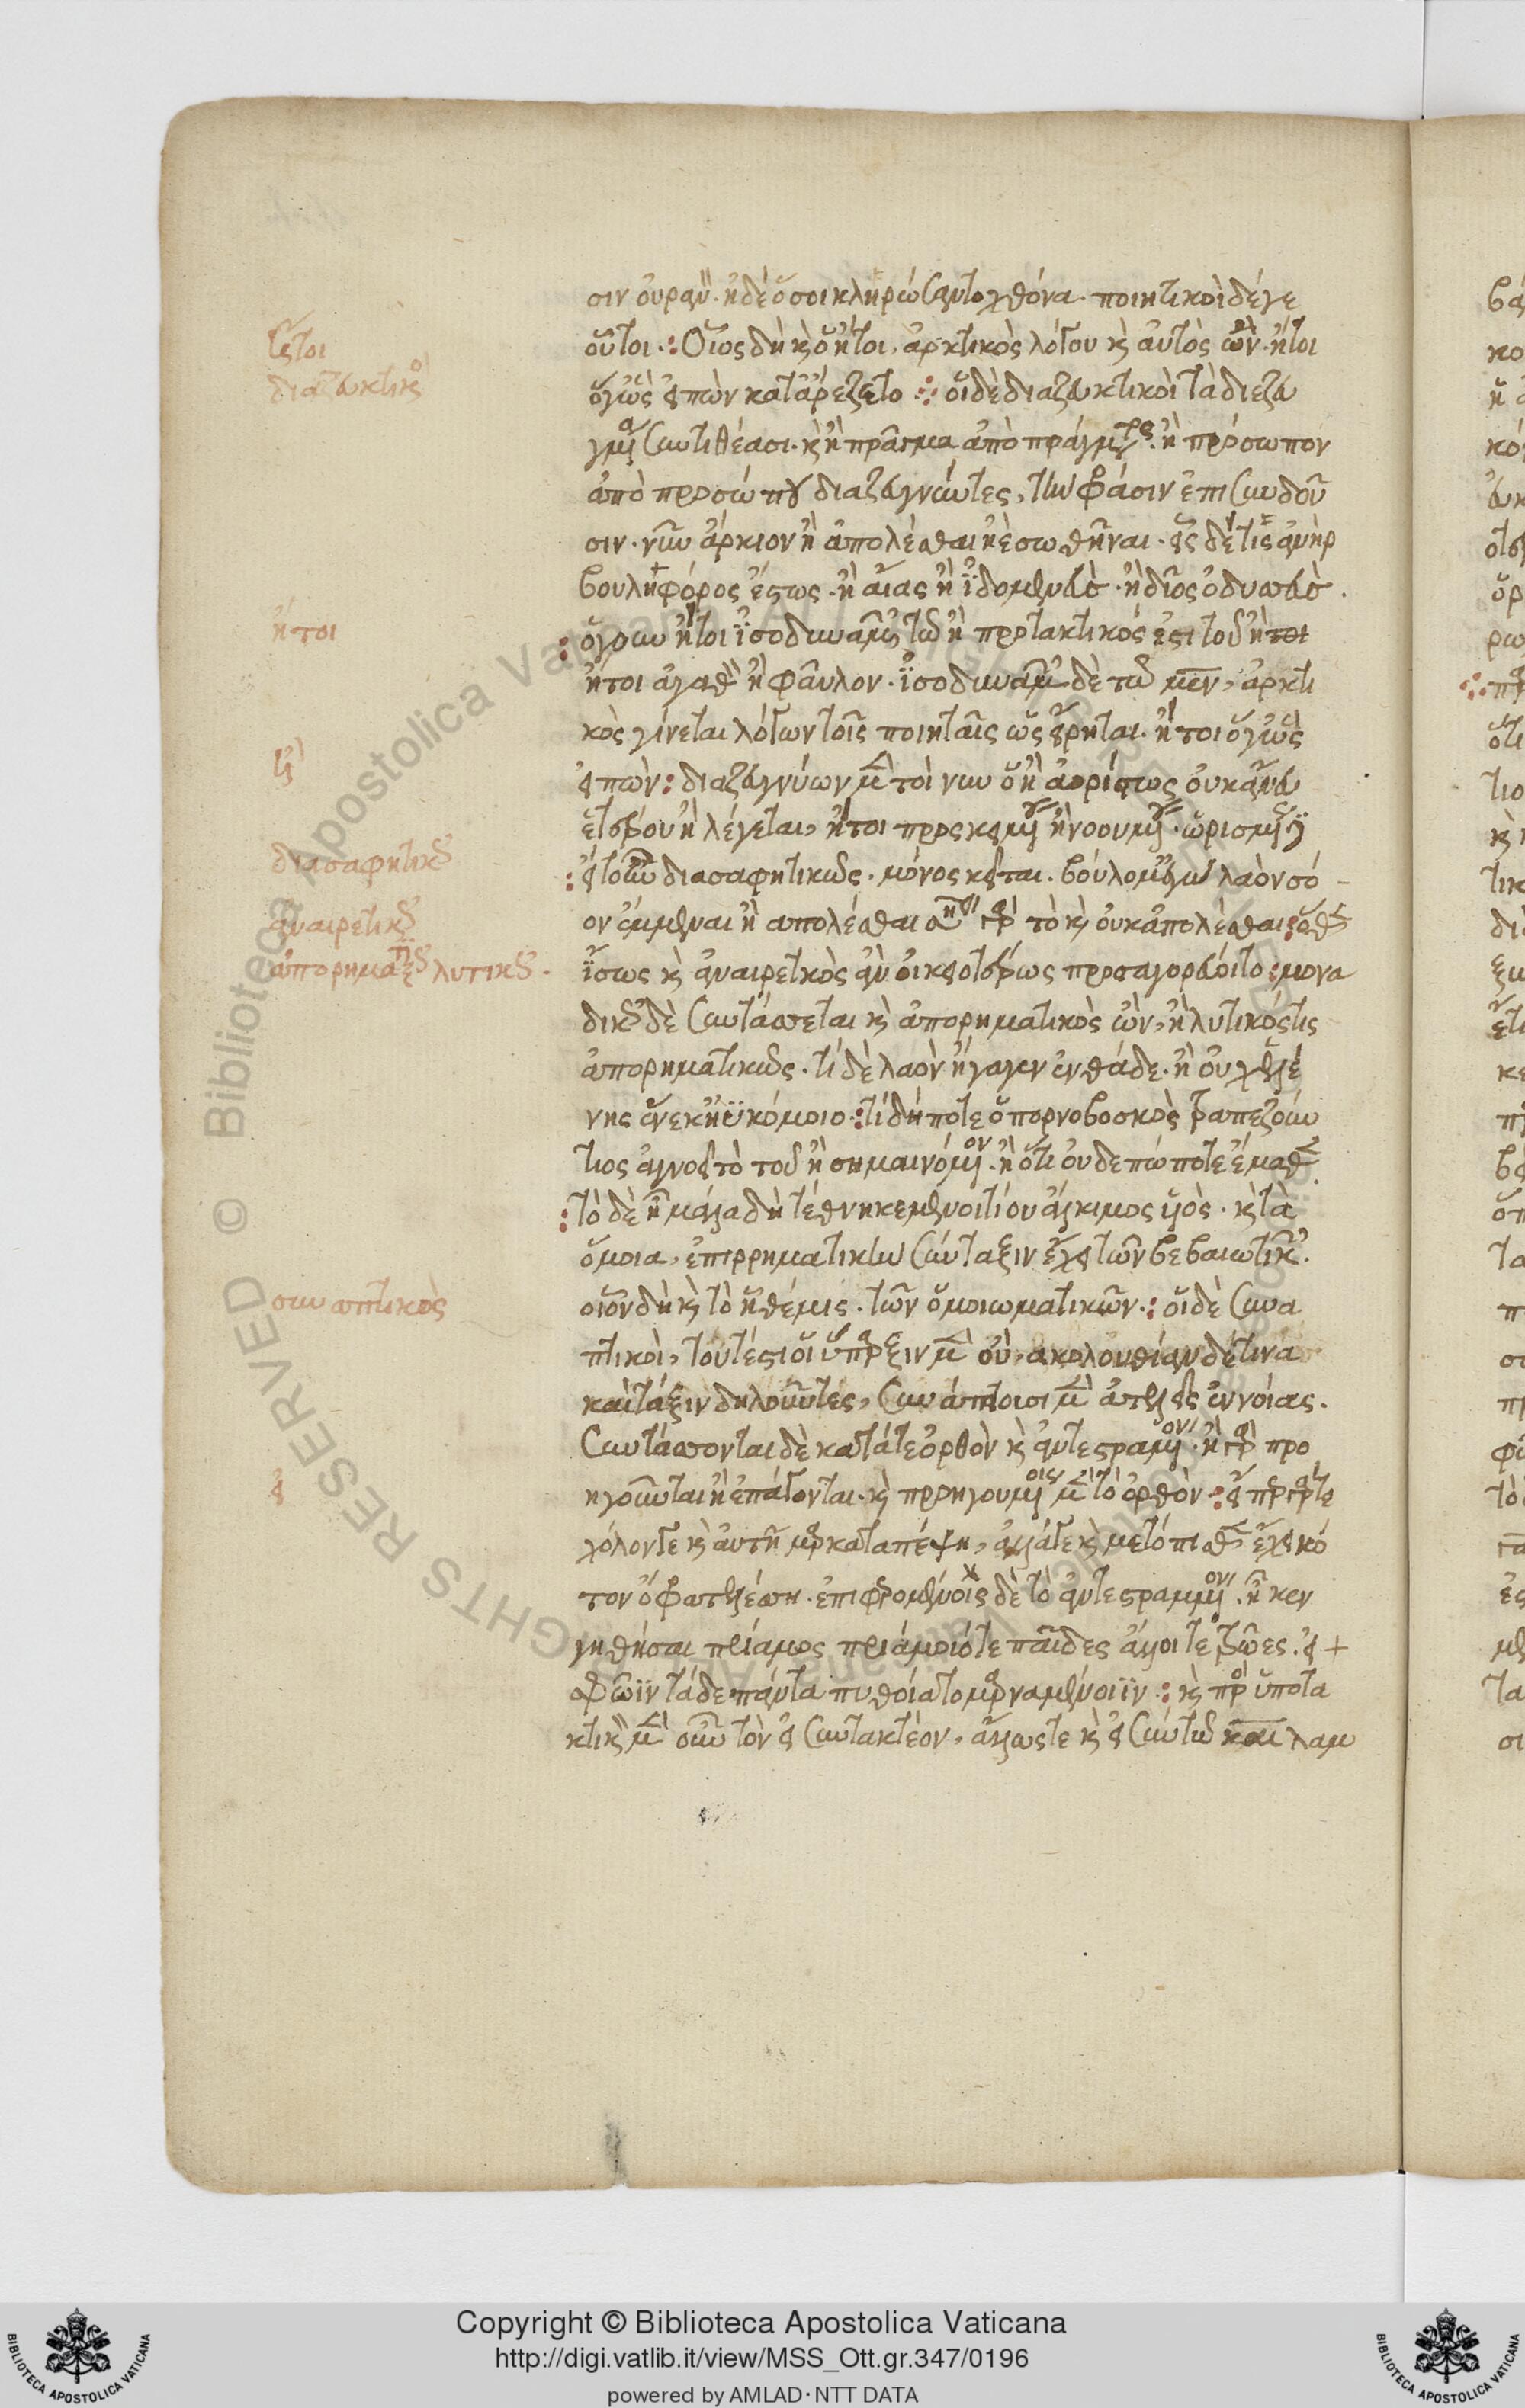 σιν οὐρανόν. ἠδὲ ὅσοι κληρώσαντο χθόνα. ποιητικοὶ δέ γε
οὗτοι : Οἷος δὴ κὶ ὁ ἤτοι, ἀρκτικὸς λόγου κὶ αὐτὸς ὤν. ἤτοι
ὅγ' ὣς εἰπὼν κατ' ἄρ' ἕζετο : οἱ δὲ διαζευκτικοὶ τὰ διεζευ
γμένα συντιθέασι. κὶ ἢ πρᾶγμα ἀπὸ πράγματος. ἢ πρόσωπον
ἀπὸ προσώπου διαζευγνύντες, τὴν φράσιν ἐπισυνδοῦ
σιν. νῦν ἄρκιον ἢ ἀπολέσθαι ἠὲ σωθῆναι. εἷς δέ τις ἀνὴρ
βουληφόρος ἔστω. ἢ αἴας ἢ ἰδομενεὺς. ἢ δῖος ὀδυσσεὺς.
: ὅγουν ἤτοι ἰσοδυναμῶν τῷ ἢ προτακτικός ἐστι τοῦ ἤτοι
ἤτοι ἀγαθὸν ἢ φαῦλον. ἰσοδυναμῶν δὲ τῷ μεν, ἀρκτι
κὸς γίνεται λόγων τοῖς ποιηταῖς ὡς εἴρηται. ἤτοι ὅγ' ὣς
εἰπὼν : διαζευγνύων μὲν τοίνυν ὁ ἢ ἀορίστως οὐκ ἄνευ
ἑτέρου ἢ λέγεται, ἤτοι προσκειμένου ἢ νοουμένου. ὡρισμένως
: εἴτουν διασαφητικῶς. μόνος κεῖται. βούλομ' ἐγὼ λαὸν σό
ον ἔμμεναι ἢ ἀπολέσθαι ἀντὶ γὰρ τὸ κὶ οὐκ ἀπολέσθαι : ὅθεν
ἴσως κὶ ἀναιρετικὸς ἂν οἰκειοτέρως προσαγορεύοιτο : μονα
δικῶς δὲ συντάσσεται κὶ ἀπορηματικὸς ὢν, ἢ λυτικός τις
ἀπορηματικῶς. τί δὲ λαὸν ἤγαγεν ἐνθάδε. ἢ οὐχ ἑλέ
νης ἕνεκ' ἠϋκόμοιο : τί δήποτε ὁ πορνοβοσκὸς τραπεζούν
τιος ἀγνοεῖ τὸ τοῦ ἢ σημαινόμενον. ἢ ὅτι οὐδεπώποτε ἔμαθεν
: τὸ δὲ ἦ μάλα δὴ τέθνηκε μενοιτίου ἄλκιμος υἱὸς. κὶ τὰ
ὅμοια, ἐπιρρηματικὴν σύνταξιν ἔχει τῶν βεβαιωτικῶν.
οἷον δὴ κὶ τὸ ἣ θέμις. τῶν ὁμοιωματικῶν : οἱ δὲ συνα
πτικοὶ, τουτέστι οἱ ὕπαρξιν μὲν οὐ, ἀκολουθίαν δέ τινα
καὶ τάξιν δηλοῦντες, συνάπτουσι μὲν ἀτελεῖς ἐννοίας.
συντάσσονται δὲ κατά τε ὀρθὸν κὶ ἀντεστραμμένον. ἢ γὰρ προ
ηγοῦνται ἢ ἐπάγονται. κὶ προηγουμένοις μὲν τὸ ὀρθὸν : εἴπερ γάρ τε
χόλον γε κὶ αὐτῆμαρ καταπέψη, ἀλλά τε κὶ μετόπισθεν ἔχει κό
τον ὄφρα τελέσση. ἐπιφερομένοις δὲ τὸ ἀντεστραμμένον. ἦ κεν
γηθήσαι πρίαμος πριάμοιό τε παῖδες ἄλλοι τε τρῶες. εἰ +
σφῶϊν τάδε πάντα πυθοίατο μαρναμένοιϊν : κὶ πρὸς ὑποτα
κτικὸν μὲν οὖν τὸν εἰ συντακτέον, ἄλλως τε κὶ εἰ σὺν τῷ και λαμ
ἤτοι
διαζευκτικοὶ
ἤτοι
ἢ
διασαφητικῶς
ἀναιρετικῶς
ἀπορηματικῶς λυτικῶς.
συναπτικὸς
εἰ
Copyright © Biblioteca Apostolica Vaticana
http://digi.vatlib.it/view/MSS_Ott.gr.347/0196
powered by AMLAD·NTT DATA